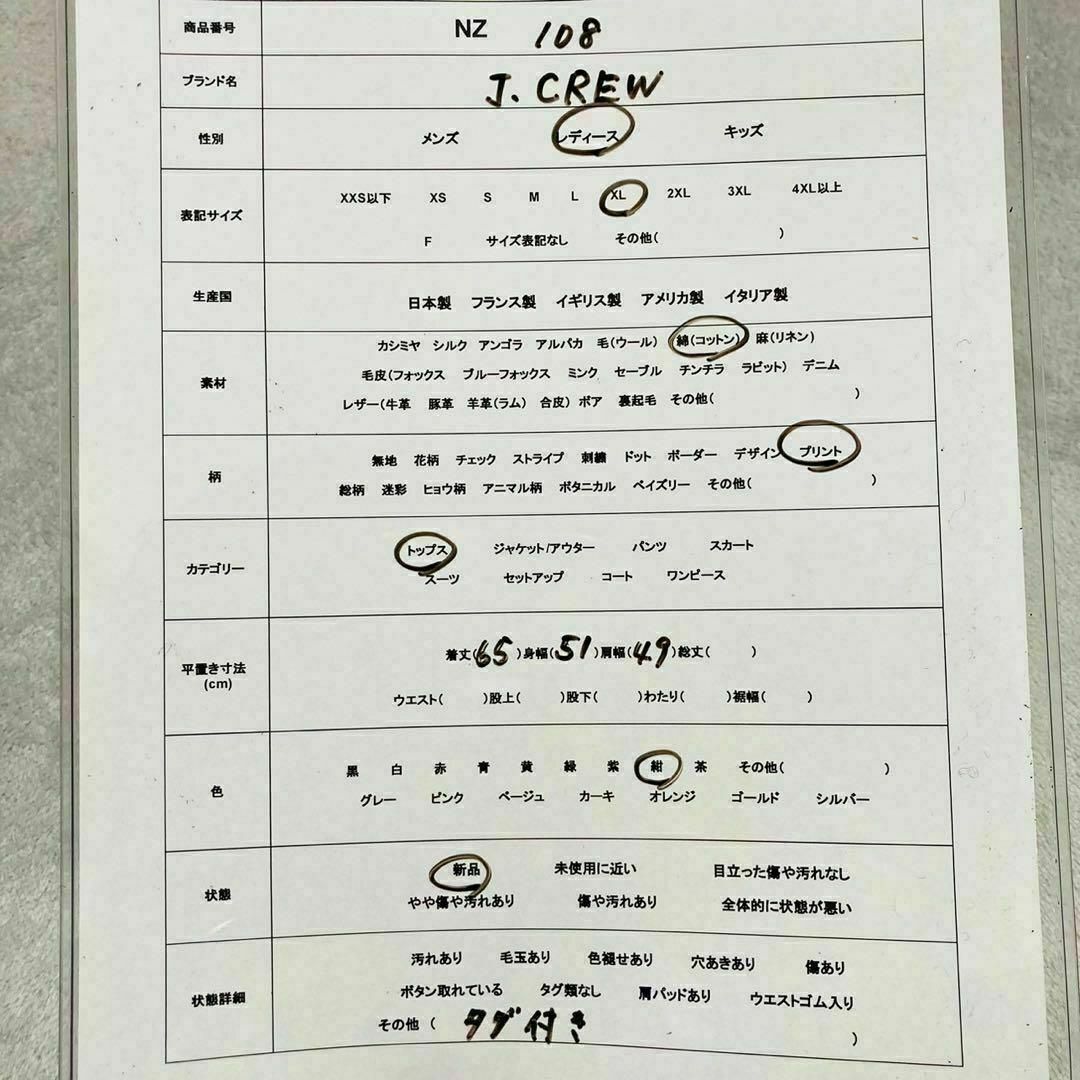 商品番号 NZ 108
ブランド名 J. CREW
性別 メンズ レディース キッズ
XXS以下 XS S M L XL 2XL 3XL 4XL以上
表記サイズ
F サイズ表記なし その他( )
生産国 日本製 フランス製 イギリス製 アメリカ製 イタリア製
カシミヤ シルク アンゴラ アルパカ 毛(ウール) 綿(コットン) 麻(リネン)
素材 毛皮(フォックス ブルーフォックス ミンク セーブル チンチラ ラビット) デニム
レザー(牛革 豚革 羊革(ラム) 合皮) ボア 裏起毛 その他( )
無地 花柄 チェック ストライプ 刺繍 ドット ボーダー デザイン プリント
柄
総柄 迷彩 ヒョウ柄 アニマル柄 ボタニカル ペイズリー その他( )
トップス ジャケット/アウター パンツ スカート
カテゴリー
スーツ セットアップ コート ワンピース
着丈(65)身幅(51)肩幅(49)総丈( )
平置き寸法
(cm)
ウエスト( )股上( )股下( )わたり( )裾幅( )
黒 白 赤 青 黄 緑 紫 紺 茶 その他( )
色
グレー ピンク ベージュ カーキ オレンジ ゴールド シルバー
新品 未使用に近い 目立った傷や汚れなし
状態
やや傷や汚れあり 傷や汚れあり 全体的に状態が悪い
汚れあり 毛玉あり 色褪せあり 穴あきあり 傷あり
状態詳細 ボタン取れている タグ類なし 肩パッドあり ウエストゴム入り
その他 ( タグ付き )